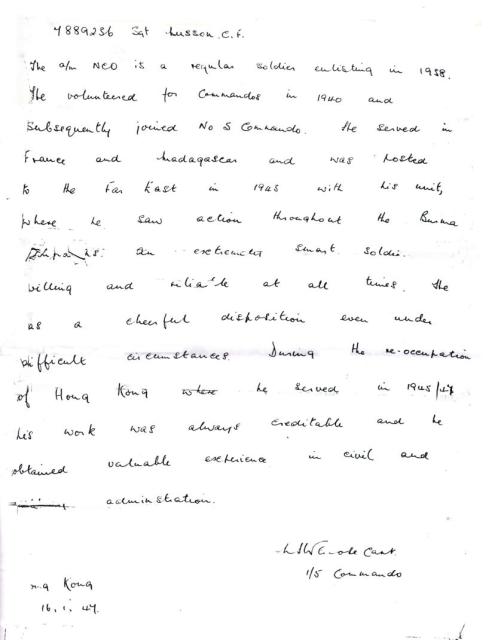 7889236 Sgt Musson. C.F.
The a/m NCO is a regular soldier enlisting in 1938.
He volunteered for Commandos in 1940 and
subsequently joined No 5 Commando. He served in
France and Madagascar and was posted
to the Far East in 1943 with his unit,
where he saw action throughout the Burma
an extremely smart soldier.
willing and reliable at all times. He
as a cheerful disposition even under
difficult circumstances. During the re-occupation
of Hong Kong where he served in 1945/47
his work was always creditable and he
obtained valuable experience in civil and
administration.
Capt.
1/5 Commando
ng Kong
16. 1. 47.